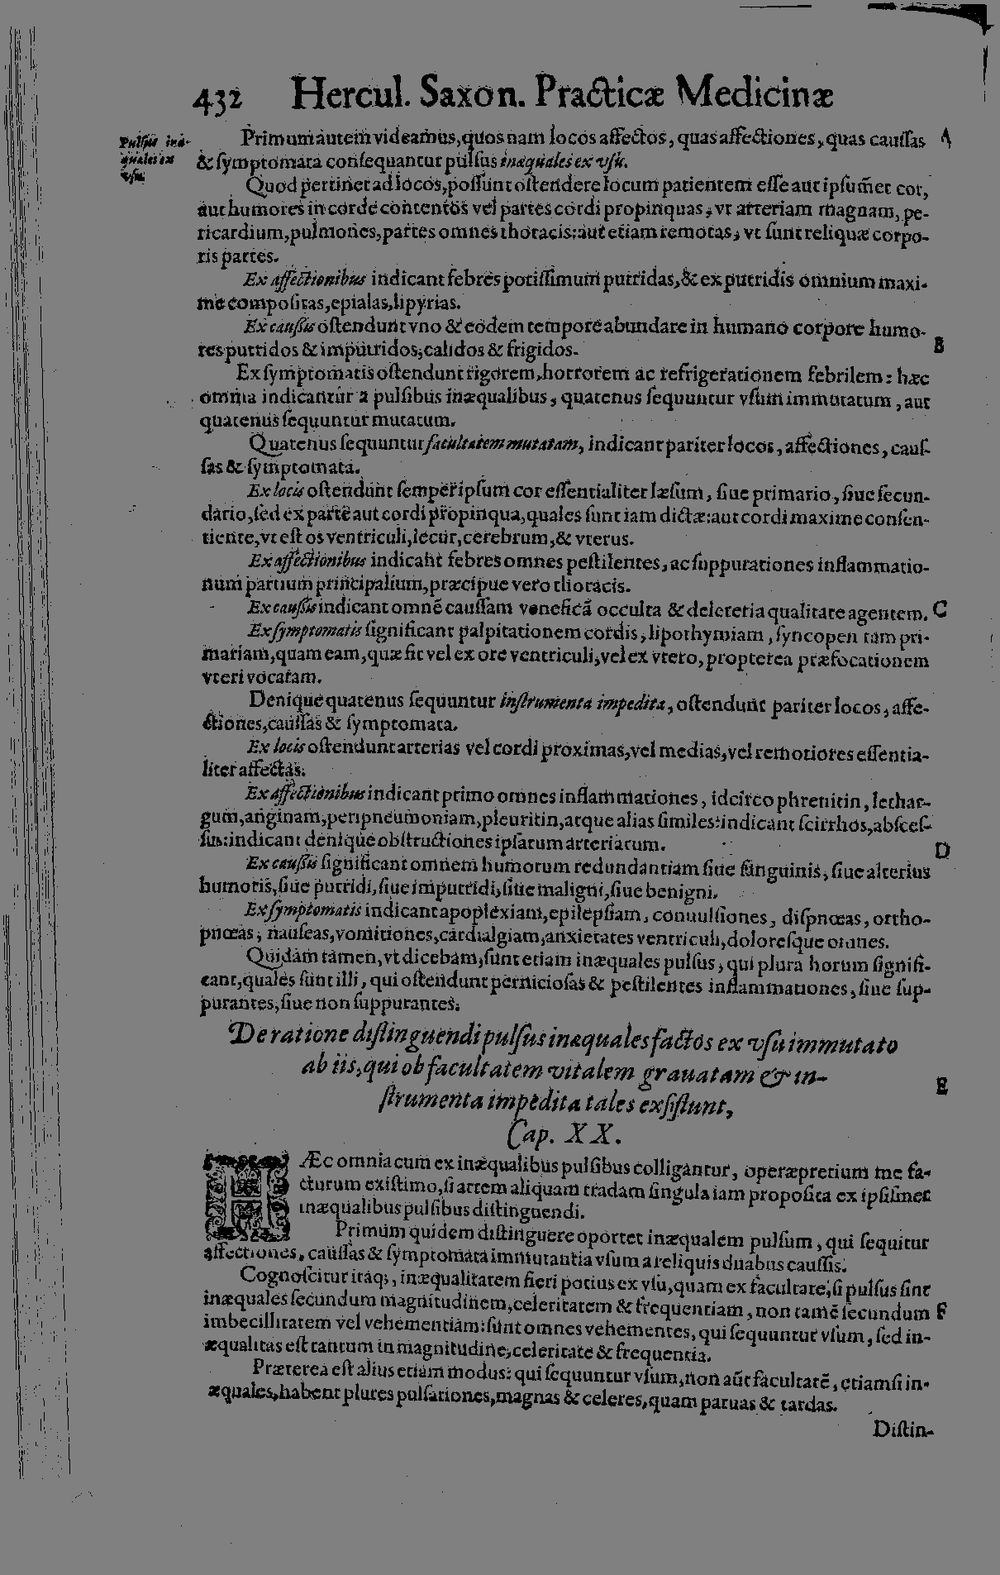 432 Hercul. Saxon. Practicæ Medicinæ
Pulsus inæ-
quales ex
vsu.
Primum autem videamus, quosnam locos affectos, quas affectiones, quas caussas A
& symptomata consequantur pulsus inæquales ex vsu.
Quod pertinet ad locos, possunt ostendere locum patientem esse aut ipsum̃et cor,
aut humores in corde contentos vel partes cordi propinquas, vt arteriam magnam, pe-
ricardium, pulmones, partes omnes thoracis: aut etiam remotas, vt sunt reliquæ corpo-
ris partes.
Ex affectionibus indicant febres potissimum putridas, & ex putridis omnium maxi-
me compositas, epialas, lipyrias.
Ex caussis ostendunt vno & eodem tempore abundare in humano corpore humo-
res putridos & imputridos, calidos & frigidos. B
Ex symptomatis ostendunt rigorem, horrorem ac refrigerationem febrilem: hæc
omnia indicantur a pulsibus inæqualibus, quatenus sequuntur vsum immutatum, aut
quatenus sequuntur mutatum.
Quatenus sequuntur facultatem mutatam, indicant pariter locos, affectiones, caus-
sas & symptomata.
Ex locis ostendunt semper ipsum cor essentialiter læsum, siue primario, siue secun-
dario, sed ex parte aut cordi propinqua, quales sunt iam dictæ: aut cordi maxime consen-
tiente, vt est os ventriculi, iecur, cerebrum, & vterus.
Ex affectionibus indicant febres omnes pestilentes, ac suppurationes inflammatio-
num partium principalium, præcipue vero thoracis.
Ex caussis indicant omnẽ caussam veneficã occulta & deleteria qualitate agentem. C
Ex symptomatis significant palpitationem cordis, lipothymiam, syncopen tam pri-
mariam, quam eam, quæ fit vel ex ore ventriculi, vel ex vtero, propterea præfocationem
vteri vocatam.
Denique quatenus sequuntur instrumenta impedita, ostendunt pariter locos, affe-
ctiones, caussas & symptomata.
Ex locis ostendunt arterias vel cordi proximas, vel medias, vel remotiores essentia-
liter affectas.
Ex affectionibus indicant primo omnes inflammationes, idcirco phrenitin, lethar-
gum, anginam, peripneumoniam, pleuritin, atque alias similes: indicant scirrhos, absces-
sus: indicant denique obstructiones ipsarum arteriarum. D
Ex caussis significant omnem humorum redundantiam siue sanguinis, siue alterius
humoris, siue putridi, siue imputridi, siue maligni, siue benigni.
Ex symptomatis indicant apoplexiam, epilepsiam, conuulsiones, dispnœas, ortho-
pnœas, nauseas, vomitiones, cardialgiam, anxietates ventriculi, doloresque omnes.
Quidam tamen, vt dicebam, sunt etiam inæquales pulsus, qui plura horum signifi-
cant, quales sunt illi, qui ostendunt perniciosas & pestilentes inflammationes, siue sup-
purantes, siue non suppurantes.
De ratione distinguendi pulsus inæquales factos ex vsu immutato
ab iis, qui ob facultatem vitalem grauatam & in- E
strumenta impedita tales exsistunt,
Cap. XX.
HÆc omnia cum ex inæqualibus pulsibus colligantur, operæpretium me fa-
cturum existimo, si artem aliquam tradam singula iam proposita ex ipsismet
inæqualibus pulsibus distinguendi.
Primum quidem distinguere oportet inæqualem pulsum, qui sequitur
affectiones, caussas & symptomata immutantia vsum a reliquis duabus caussis.
Cognoscitur itaq;, inæqualitatem fieri potius ex vsu, quam ex facultate, si pulsus sint
inæquales secundum magnitudinem, celeritatem & frequentiam, non tamẽ secundum F
imbecillitatem vel vehementiam: sunt omnes vehementes, qui sequuntur vsum, sed in-
æqualitas est tantum in magnitudine, celeritate & frequentia.
Præterea est alius etiam modus: qui sequuntur vsum, non aũt facultatẽ, etiamsi in-
æquales, habent plures pulsationes, magnas & celeres, quam paruas & tardas.
Distin-